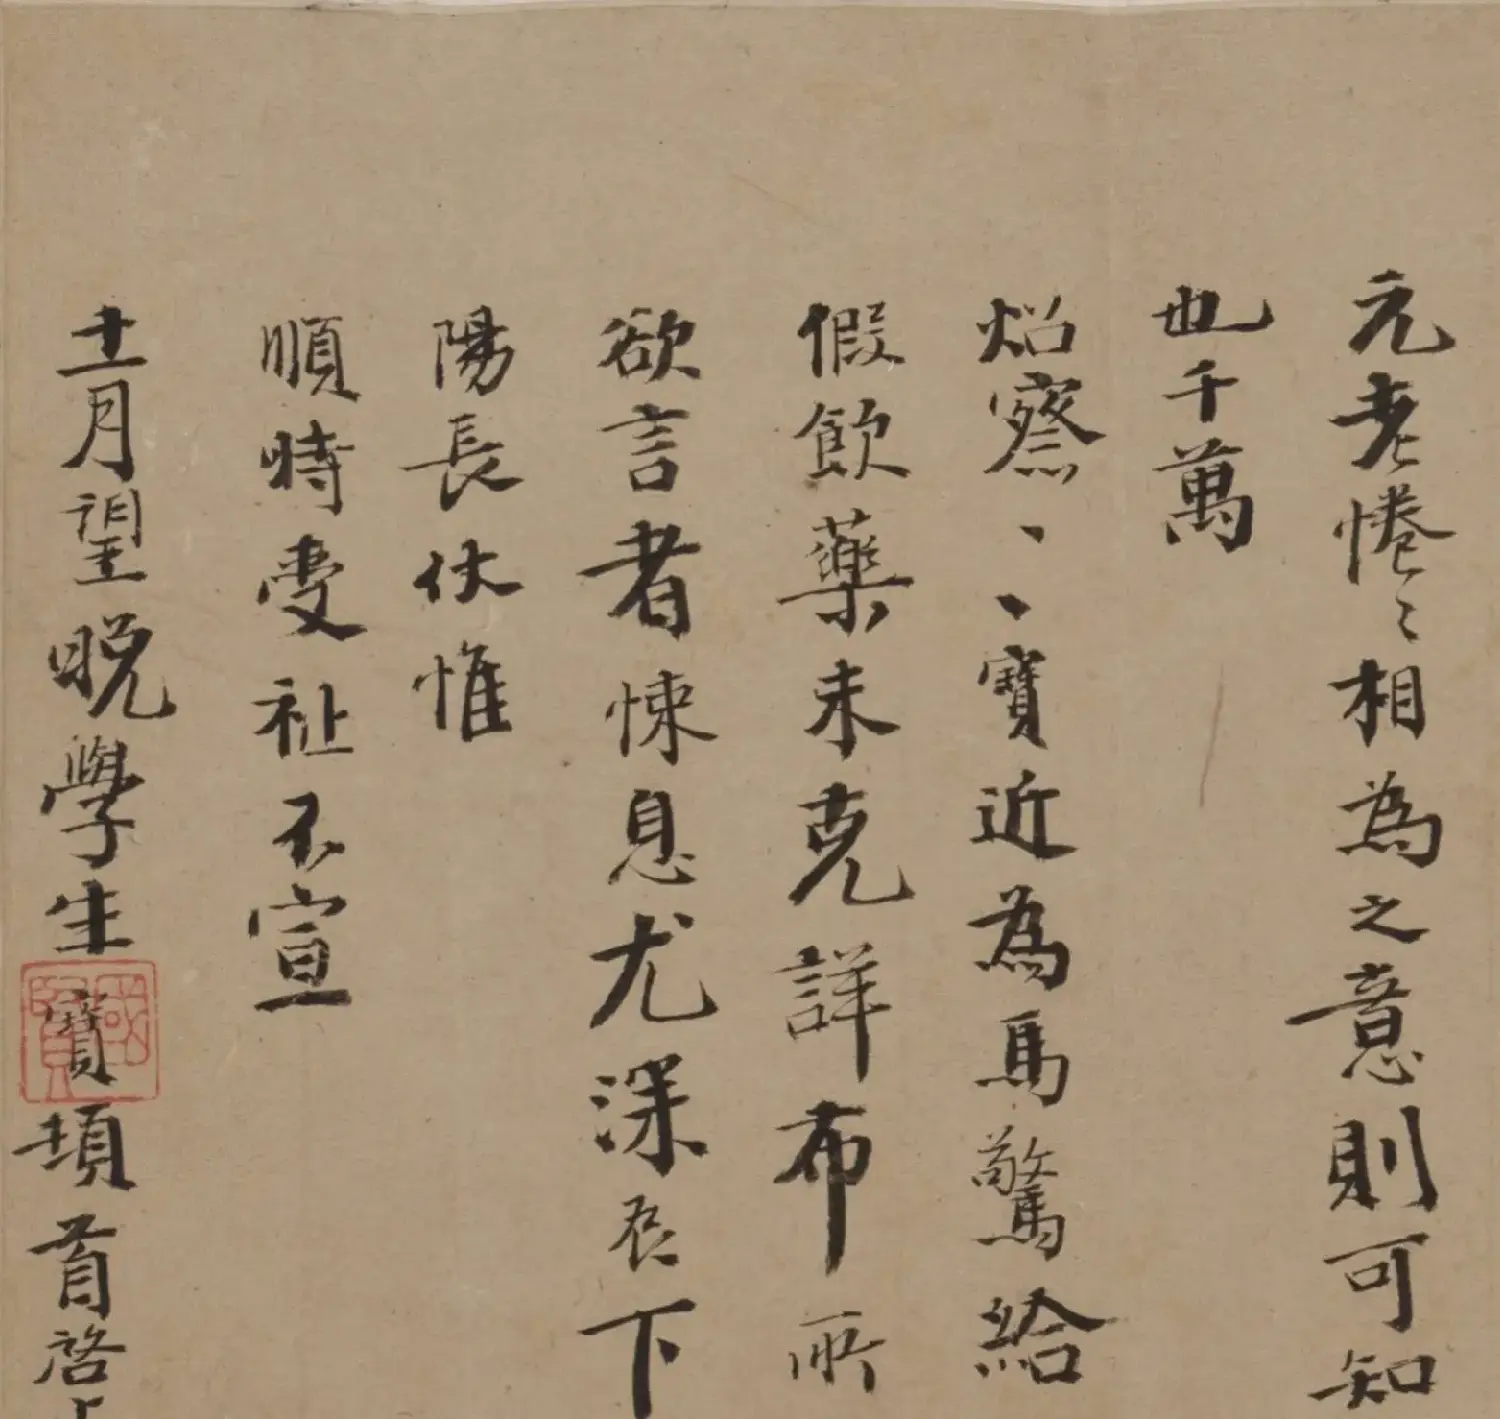 元老惓〻相為之意則可知
也千萬
炤察、、寶近為馬驚給
假飲藥未克詳布所
欲言者悚息尤深辰下
陽長伏惟
順時受祉不宣
十一月望晚學生寶頊首啓上